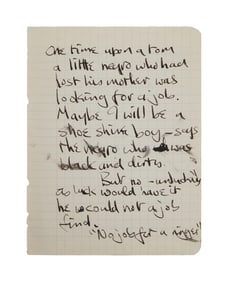 One time upon a tom
a little negro who had
lost his mother was
looking for a job.
Maybe I will be a
shoe shine boy - says
the negro who was
black and dirty.
But no -
as luck would have it
he could not a job
find.
"No job for a nigger"